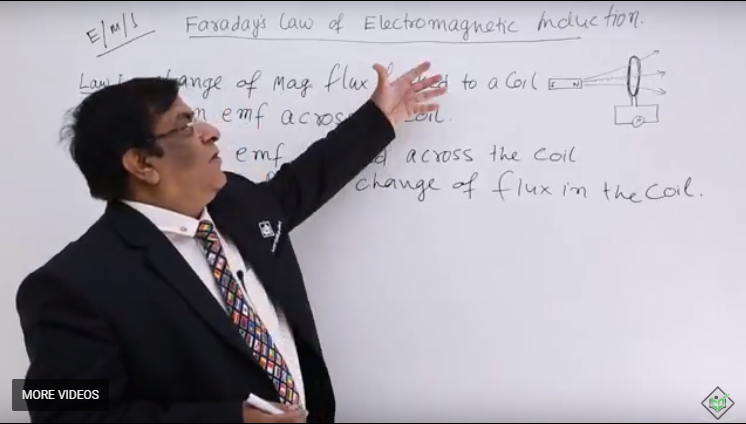 E/M/I
Faraday's Law of Electromagnetic Induction.
Law I change of Mag. flux to a Coil
emf across coil.
emf across the coil
change of flux in the coil.
S N
G
MORE VIDEOS